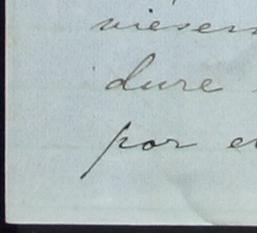 viesen
dure
por e